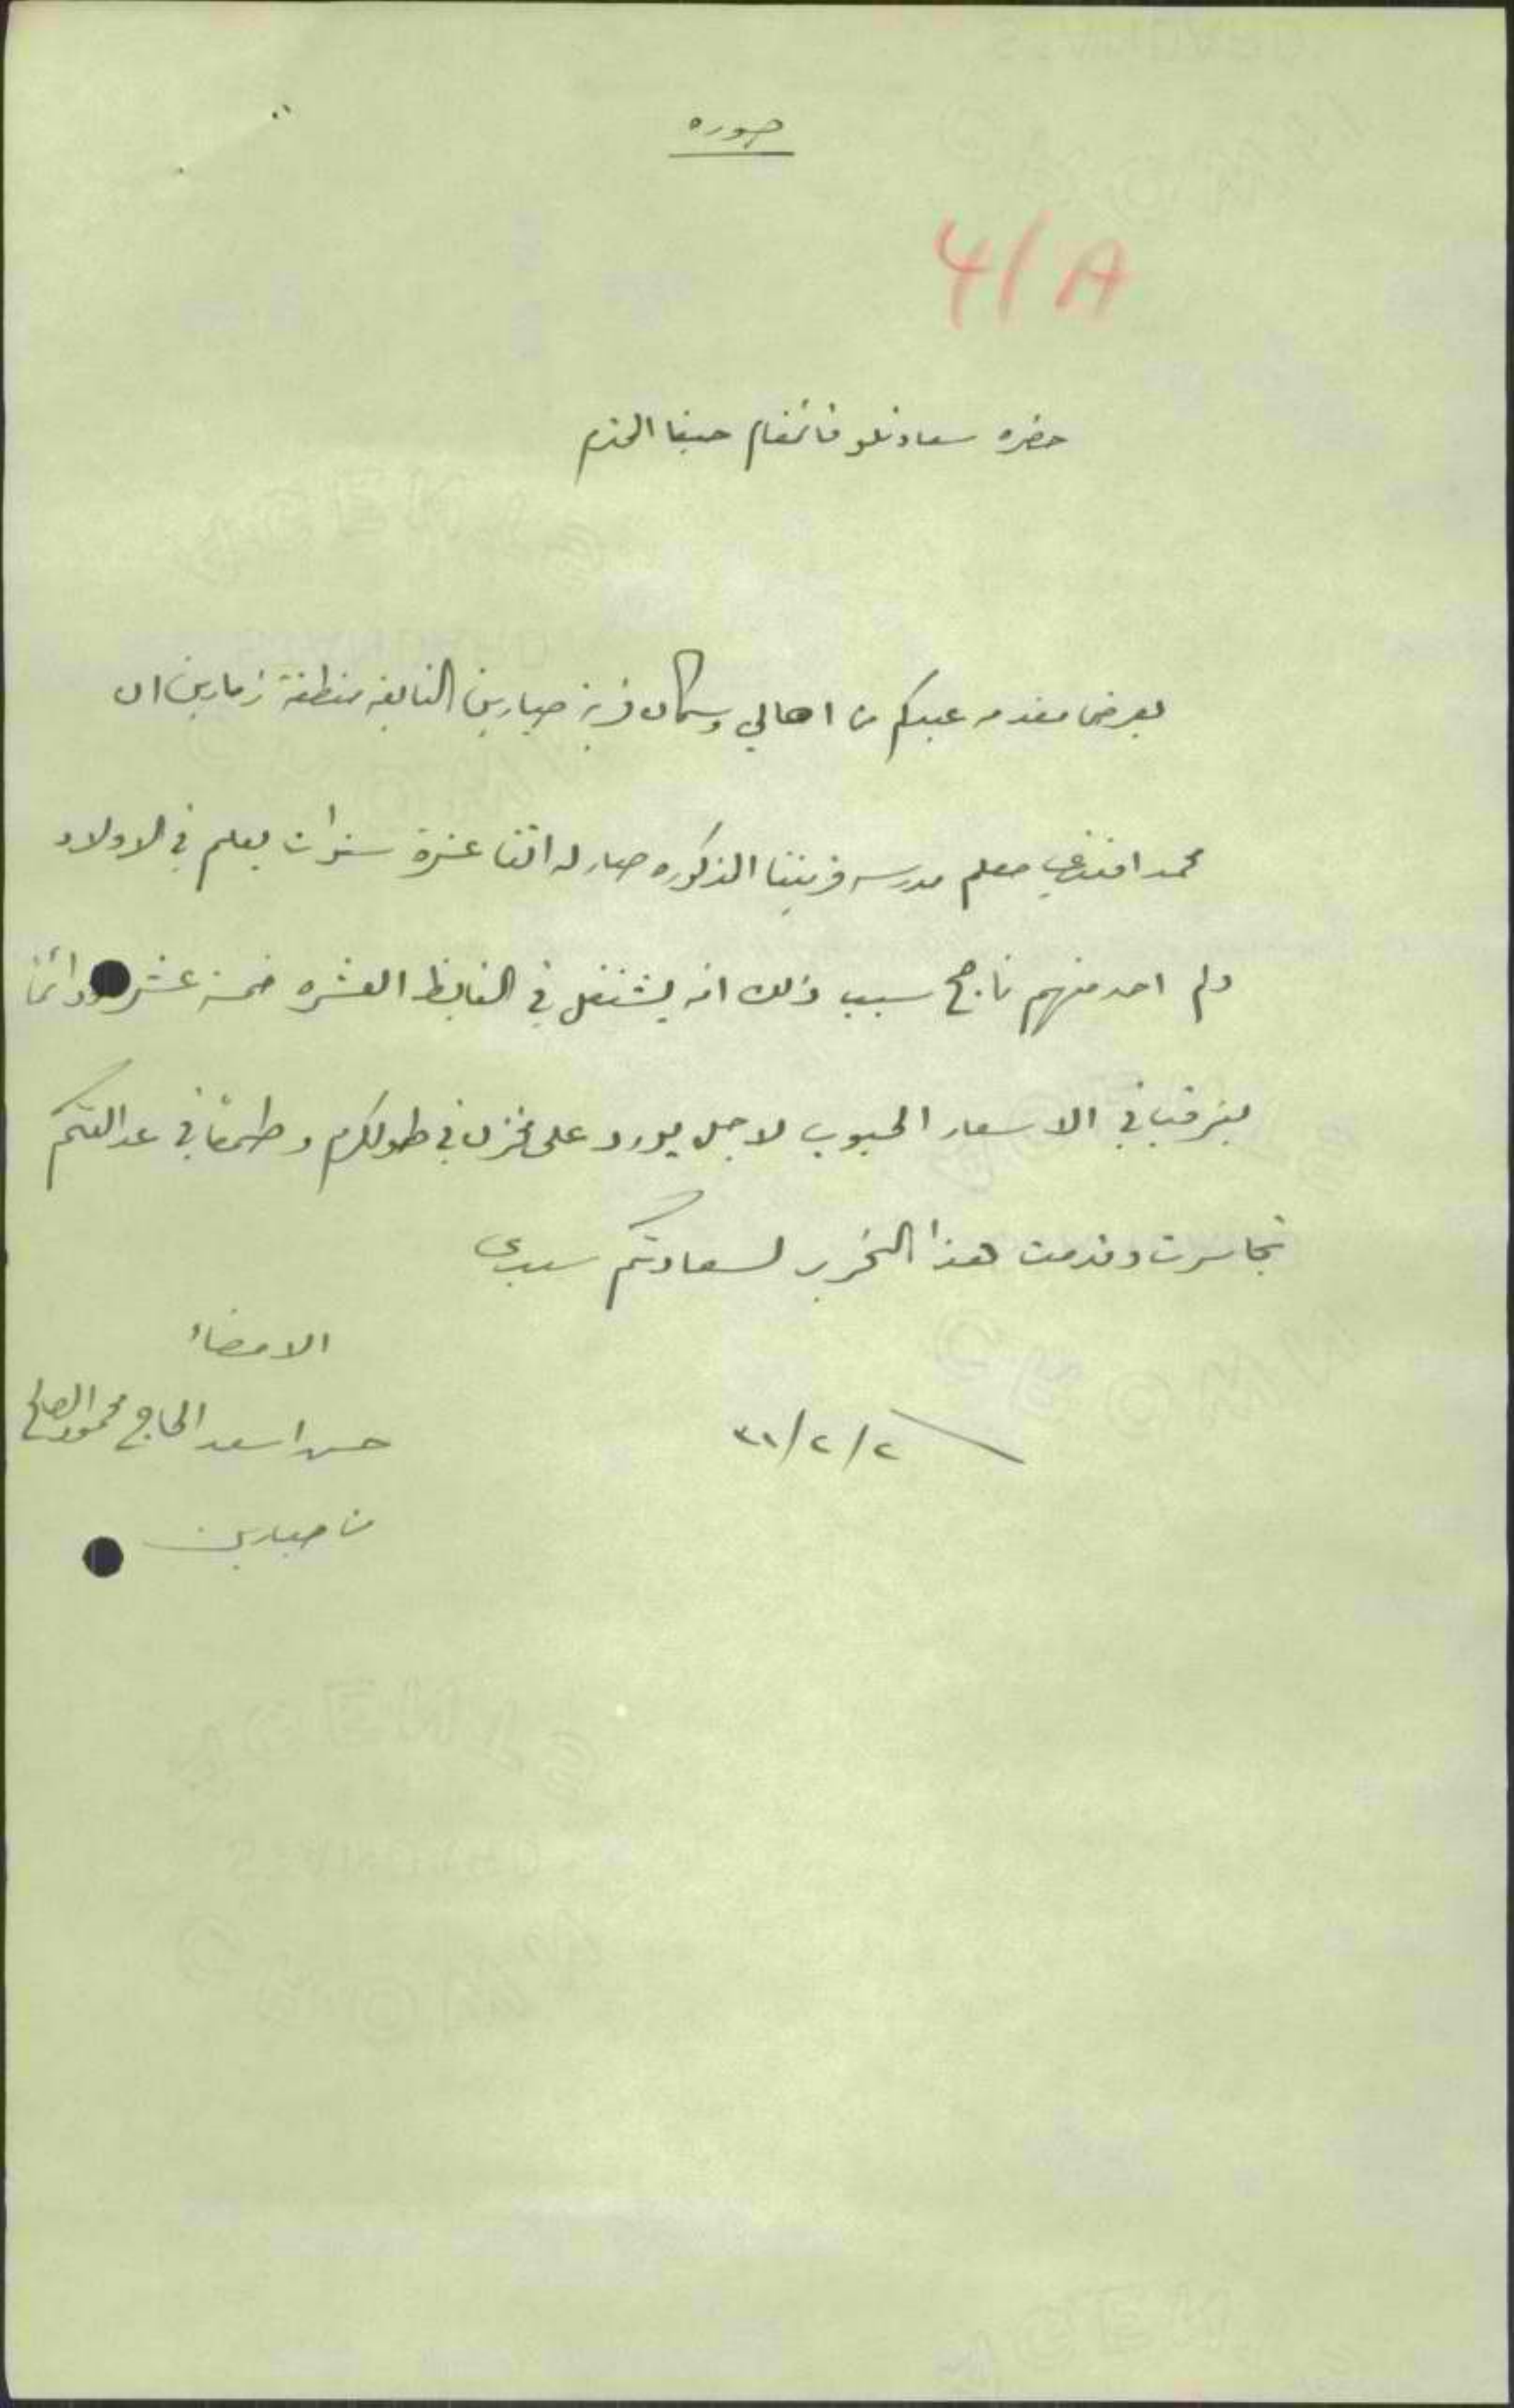 صوره
41A
حضره سعادتلو قائمقام حيفا المحترم
يعرض مقدمه عبدكم من اهالي وسكان قرية صبارين التابعه منطقة زمارين ان
محمد افندي معلم مدرسه قريتنا المذكوره صار له اثنا عشرة سنوات يعلم في الاولاد
ولم احد منهم ناجح سبب ذلك انه يشتغل في الفايظ العشره خمسة عشر ودائما
يترقب في الاسعار الحبوب لاجل يورد على مخزن في طولكرم وطمعًا في عدالتكم
تجاسرت وقدمت هذا التحرير لسعادتكم سيدي
الامضاء
حسن اسعد الحاج محمود الصالح
٣١/٢/٢
من صبارين